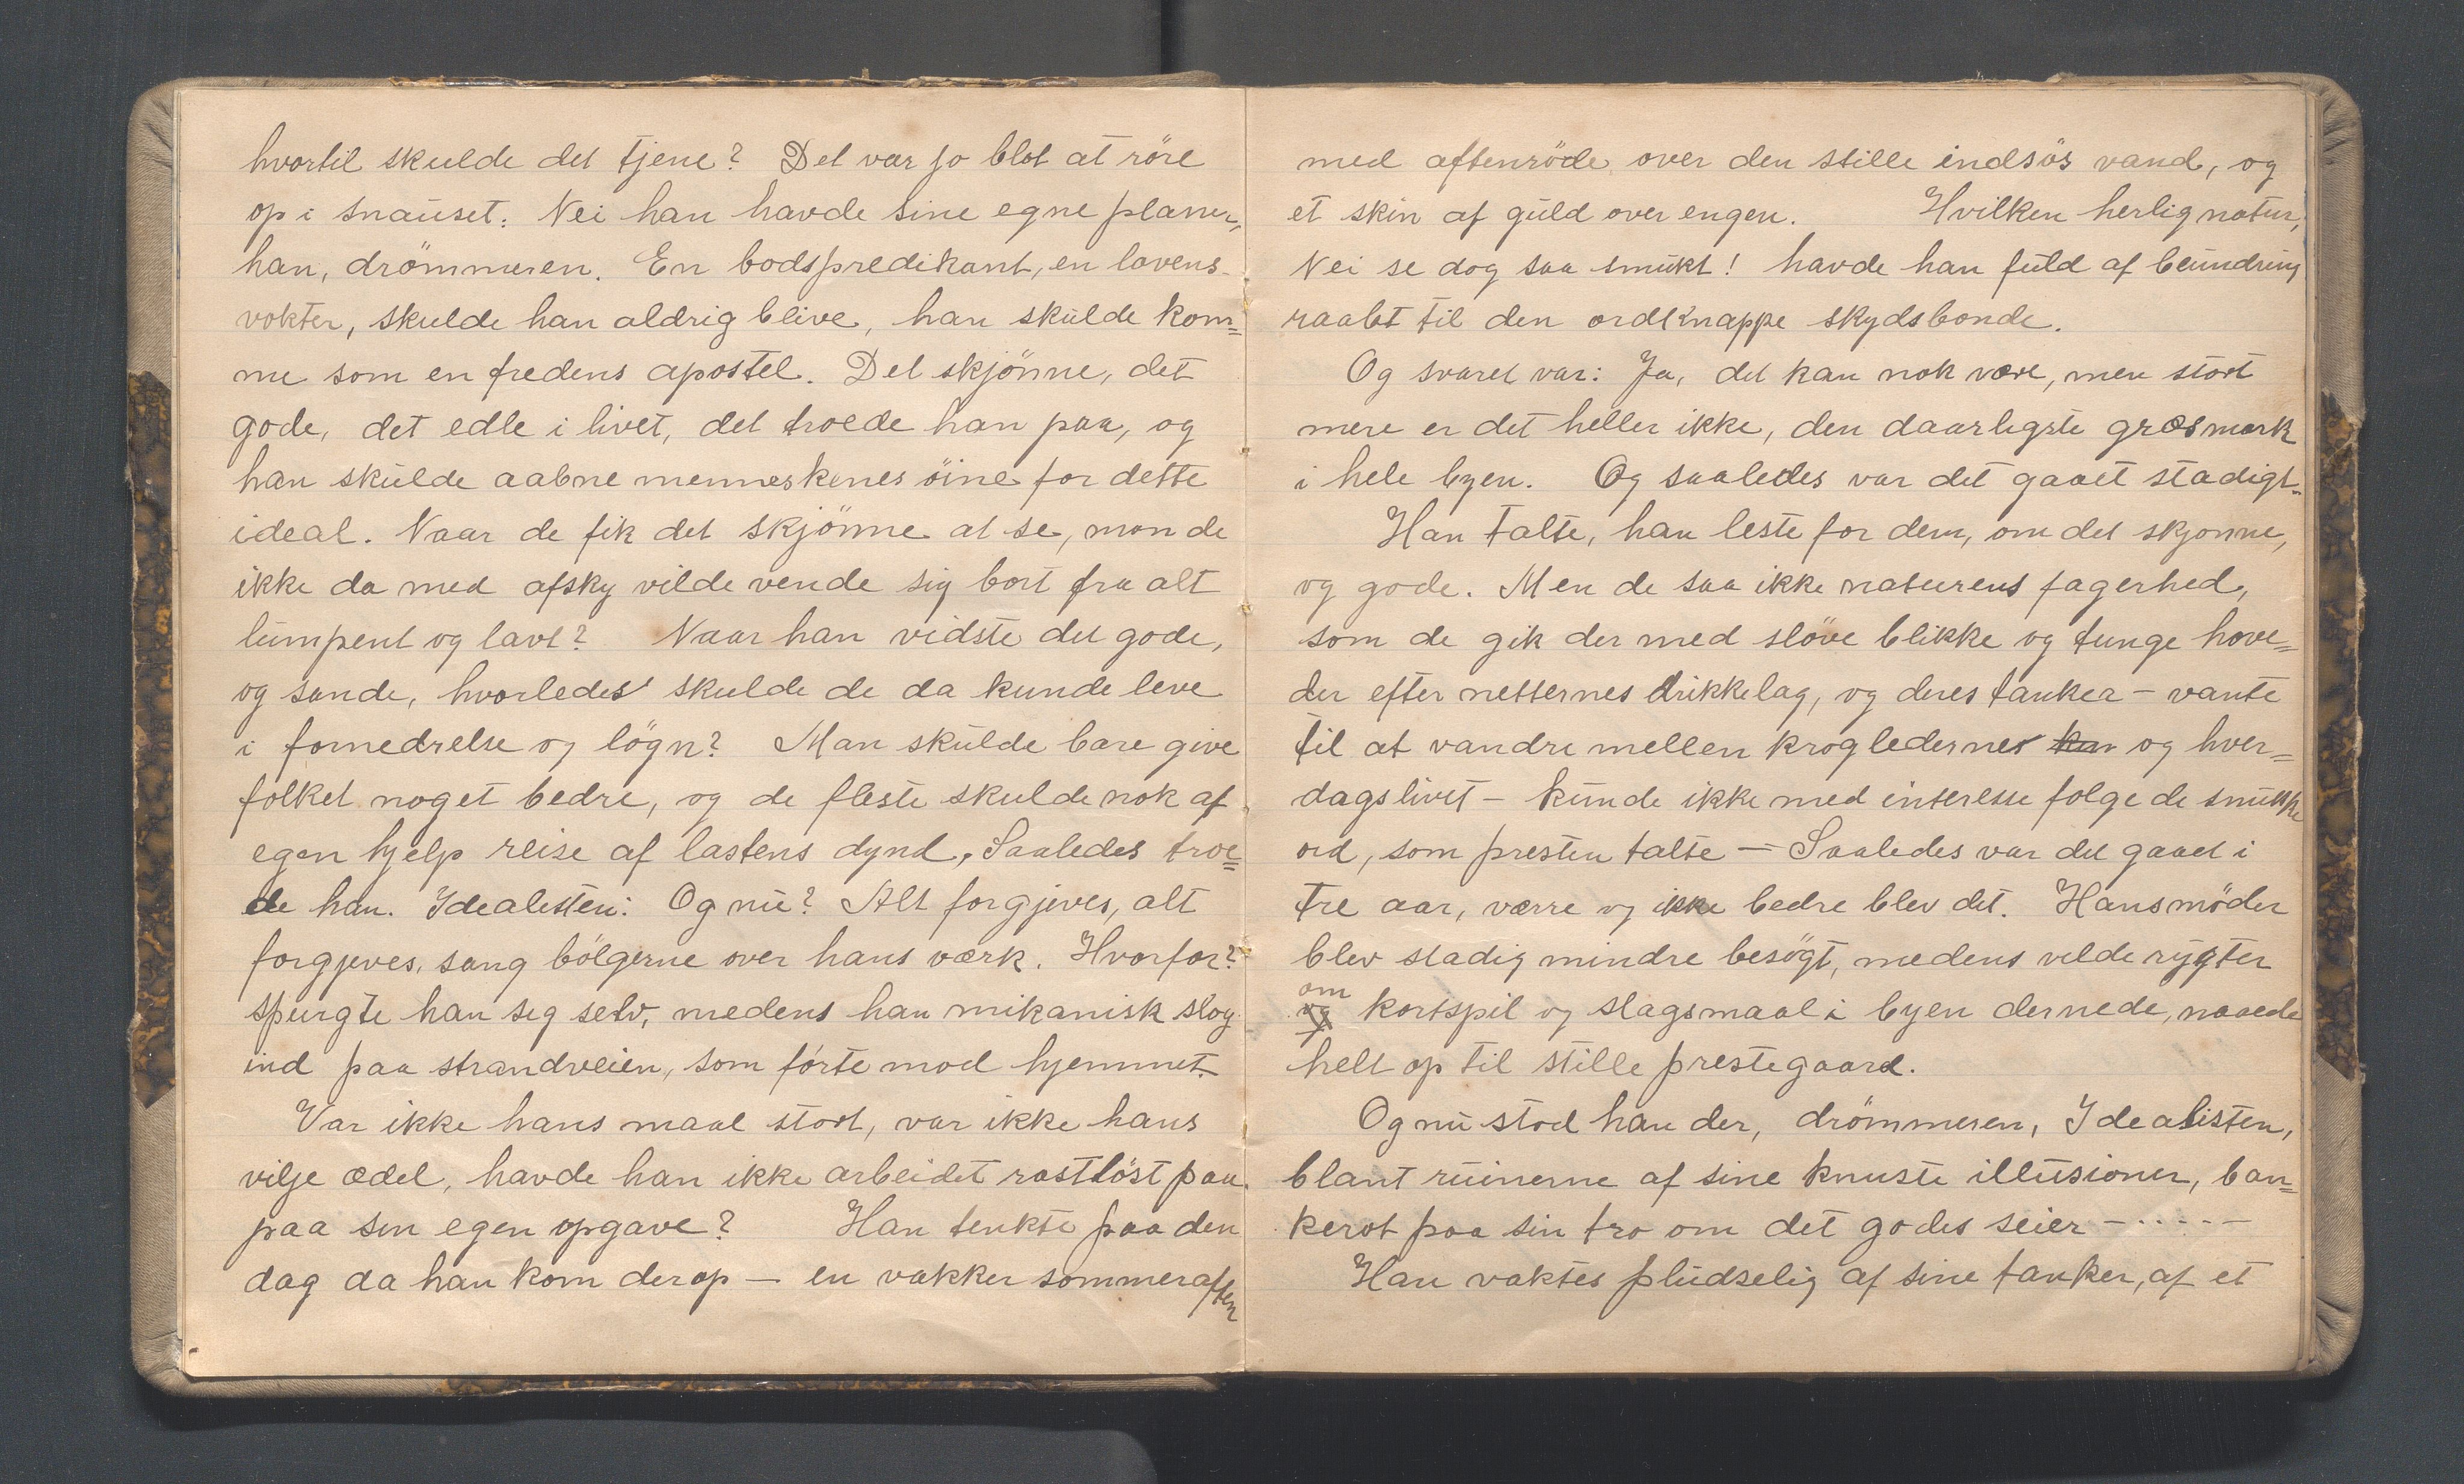 hvortil skulde det tjene? Det var jo blot at röre
op i snauset. Nei han havde sine egne planer,
han, drömmeren. En bodspredikant, en lovens
vokter, skulde han aldrig blive, han skulde kom=
me som en fredens apostel. Det skjönne, det
gode, det edle i livet, det troede han paa, og
han skulde aabne menneskenes öine for dette
ideal. Naar de fik det skjönne at se, mon de
ikke da med afsky vilde vende sig bort fra alt
lumpent og lavt? Naar han vidste det gode,
og sande, hvorledes skulde de da kunde leve
i fornedrelse og lögn? Man skulde bare give
folket noget bedre, og de fleste skulde nok af
egen hjelp reise af lastens dynd. Saaledes troe=
de han. Idealisten: Og nu? Alt forgjeves, alt
forgjeves, sang bölgerne over hans værk. Hvorfor?
spurgte han seg selv, medens han mikanisk slog
ind paa strandveien, som förte mod hjemmet.
Var ikke hans maal stort, var ikke hans
vilje ædel, havde han ikke arbeidet rastlöst paa
paa sin egen opgave? Han tenkte paa den
dag da han kom derop — en vakker sommeraften
med aftenröde over den stille indsös vand, og
et skin af guld over engen. Hvilken herlig natur,
Nei se dog saa smukt! havde han fuld af beundring
raabt til den ordknappe skydsbonde.
Og svaret var: Ja, det kan nok være, men stort
mere er det heller ikke, den daarligste græsmark
i hele byen. Og saaledes var det gaaet stadigt.
Han talte, han leste for dem, om det skjonne,
og gode. Men de saa ikke naturens fagerhed,
som de gik der med slöve blikke og tunge hove=
der efter netternes drikkelag, og deres tanker – vante
til at vandre mellen krogledernes kun og hver=
dagslivet – kunde ikke med interesse folge de smukke
ord, som presten talte – Saaledes var det gaaet i
tre aar, værre og ikke bedre blev det. Hans möder
blev stadig mindre besögt, medens vilde rygter
om
og kortspil og slagsmaal i byen dernede, naaede
helt op til stille prestegaard.
Og nu stod han der, drömmeren, Idealisten,
blant ruinerne af sine knuste illusioner, ban=
kerot paa sin tro om det godes seier – . . . . –
Han vaktes pludselig af sine tanker, af et